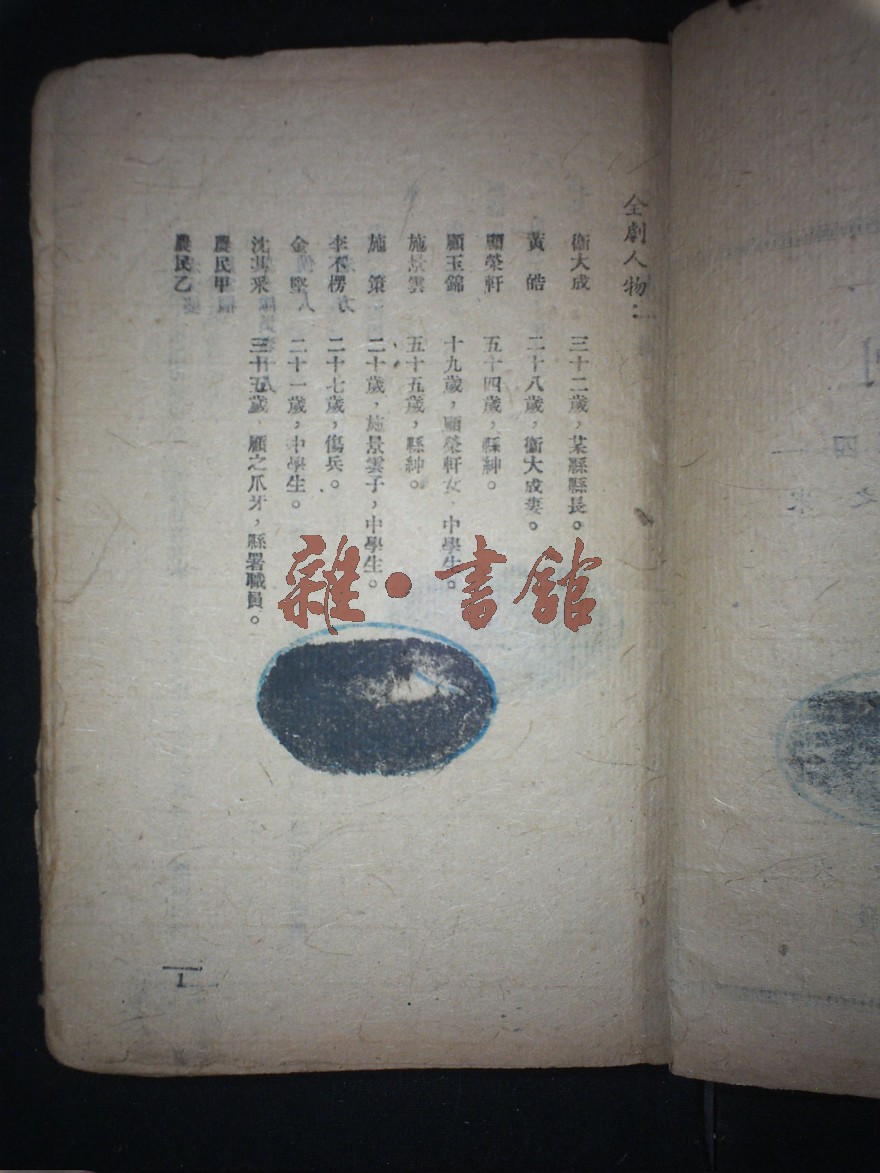 全劇人物：
衞大成　三十二歲，某縣縣長。
黃　皓　二十八歲，衞大成妻。
顧榮軒　五十四歲，縣紳。
顧玉錦　十九歲，顧榮軒女，中學生。
施景雲　五十五歲，縣紳。
施　策　二十歲，施景雲子，中學生。
李不楞　二十七歲，傷兵。
金　堅　二十一歲，中學生。
沈其釆　三十五歲，顧之爪牙，縣署職員。
農民甲
農民乙
1
雜·書館